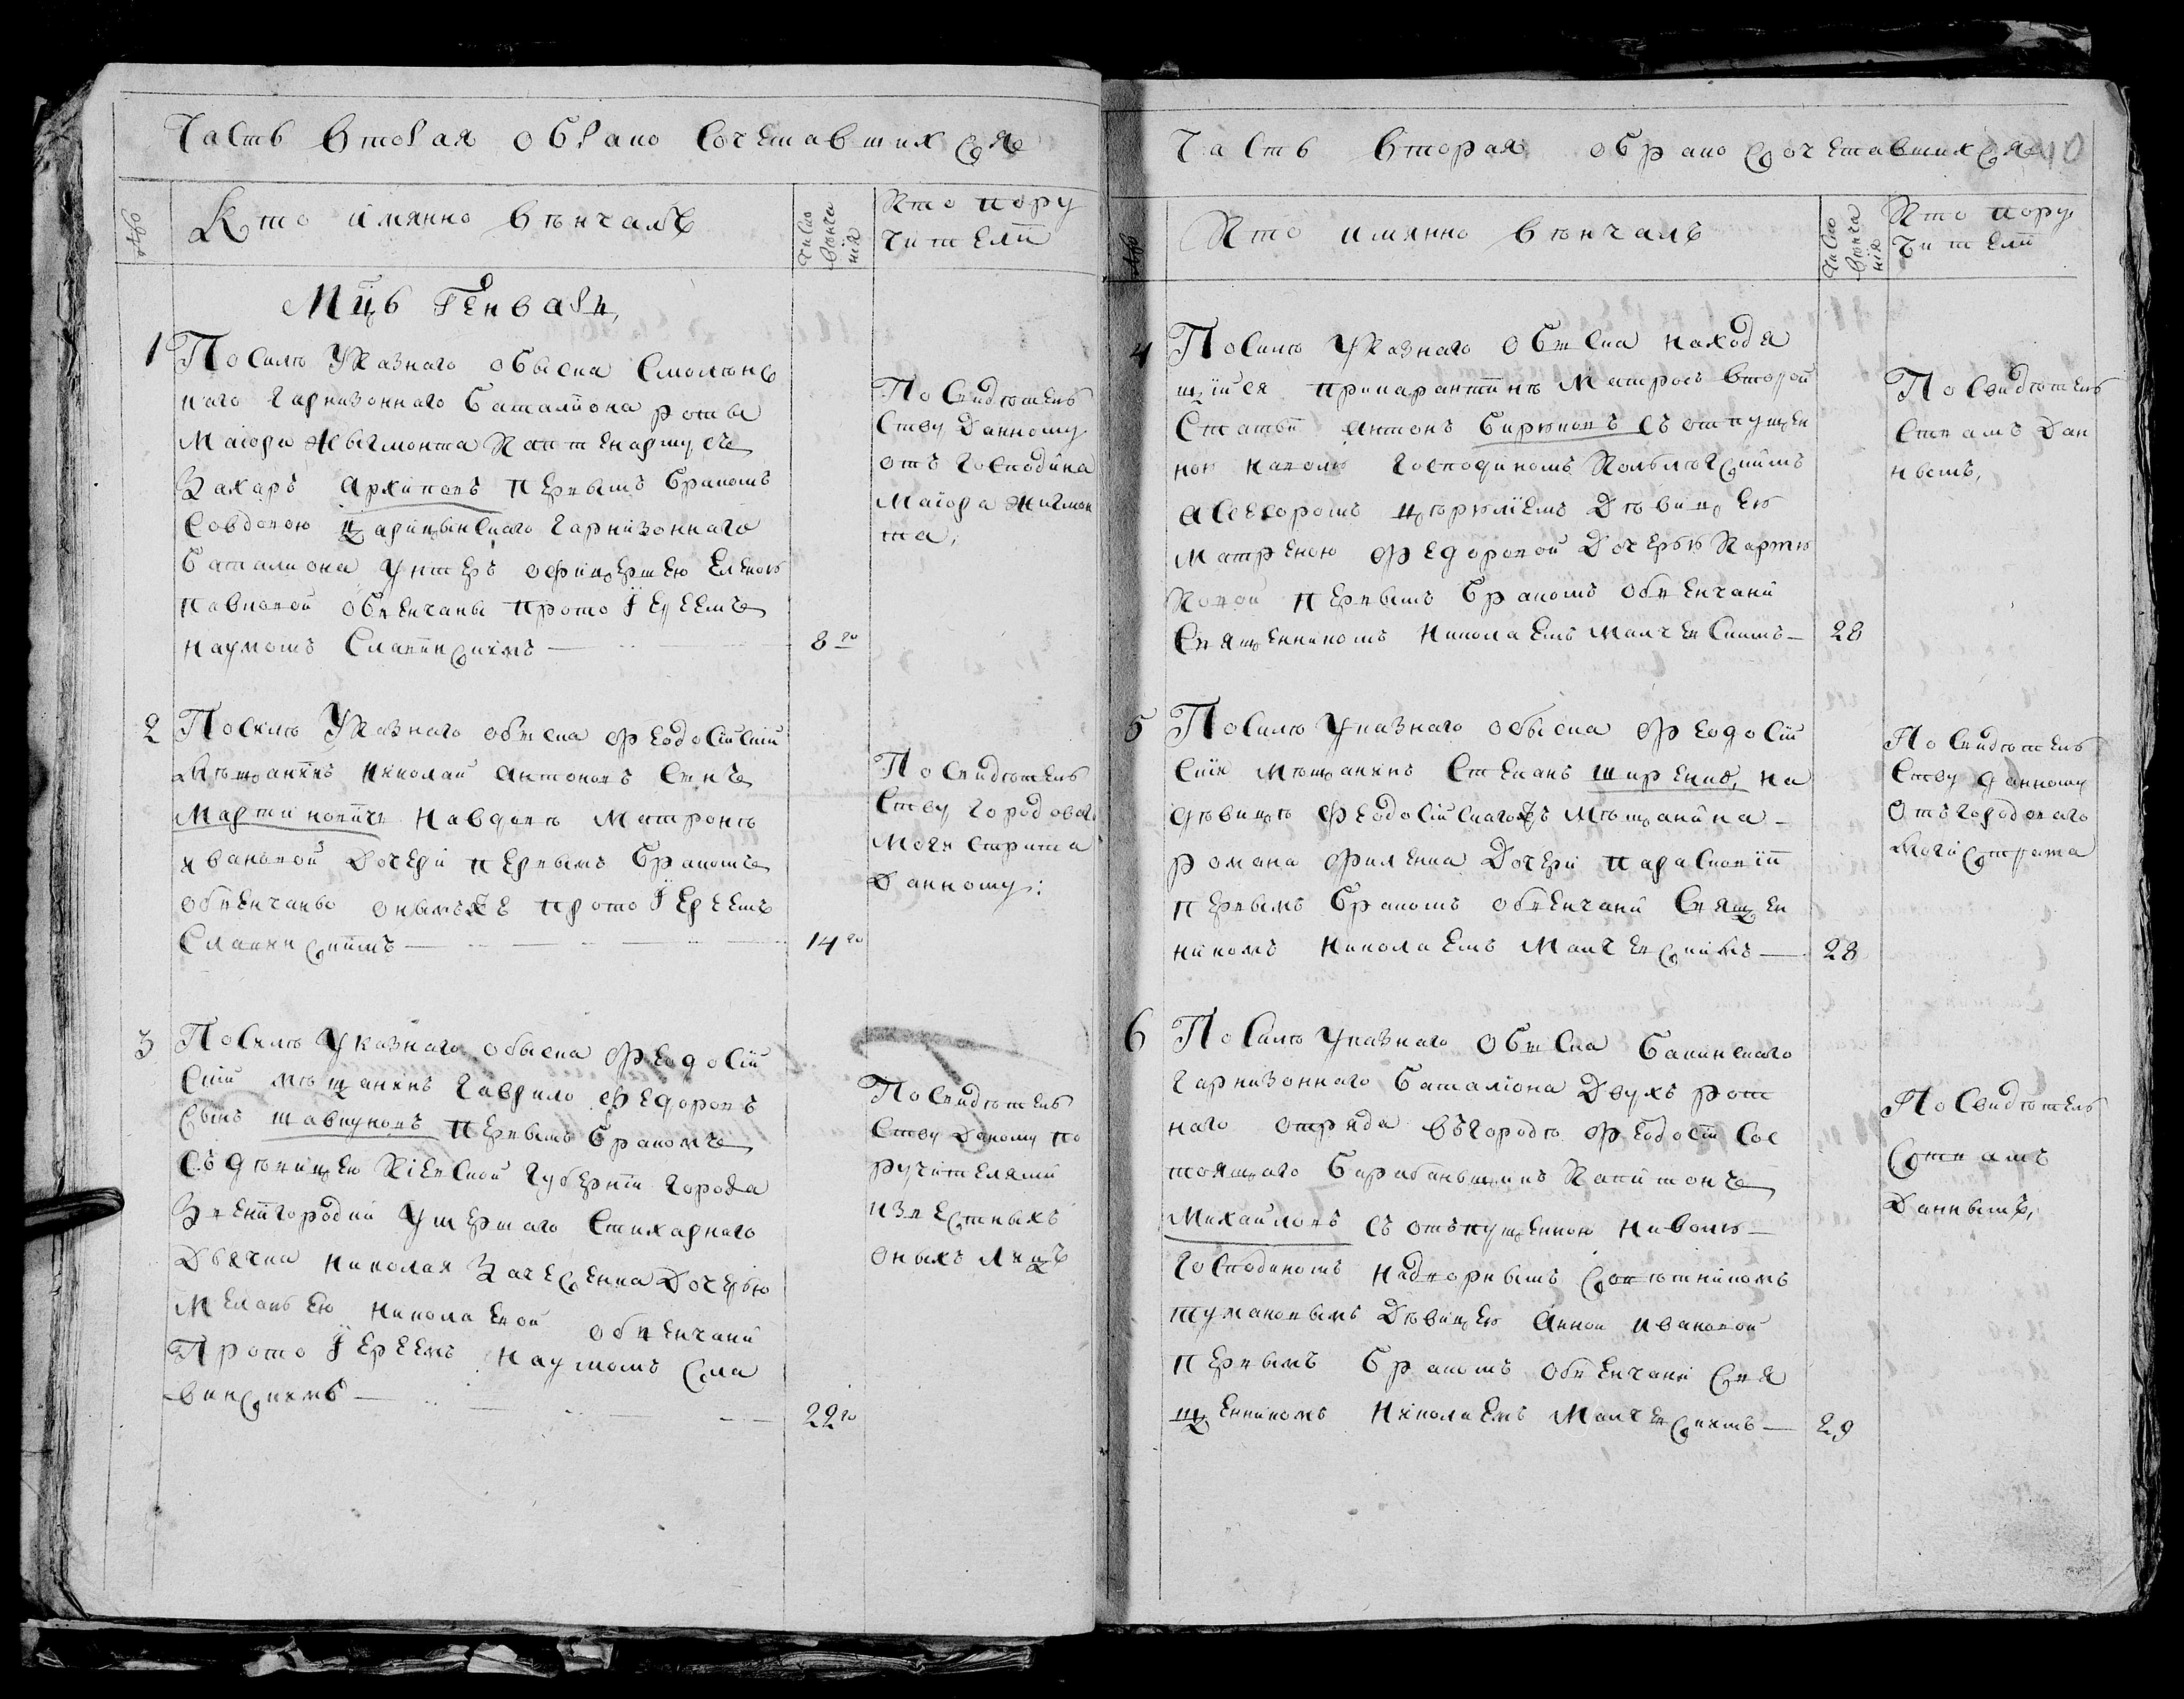 Часть вторая обрако сочетавшихся
№
Кто имянно венчалъ
Число
венча
нія
Кто пору
чители
Мцъ Генварь,
1
Посилѣ Указнаго обыска Смолѣнс
наго гарнизоннаго баталиона роты
Маіора Жыгмонта Каптенармусъ
Захаръ Архиповъ первымъ бракомъ
совдовою царицынскаго гарнизоннаго
баталиона унтеръ офицершею Еленою
павловой обвенчаны протоіереемъ
наумомъ Славинскимъ
8го
По свидѣтель
ству Данному
отъ Господина
Маіора Жигмон
та,
2
Посилѣ Указнаго обыска феодосійскій
мѣщанинъ Николай Антоновъ сынъ
Мартиновичъ навдовѣ Матронѣ
ивановой дочери первымъ бракомъ
обвенчаны онымъже протоіереемъ
Славинскимъ
14го
По свидѣтель
ству городоваго
Могистрата
Данному:
3
Посилѣ Указнаго обыска феодосій
скій мѣщанинъ гаврило федоровъ
сынъ шавкуновъ первымъ бракомъ
съ дѣвицею Кіевской губерніи города
Звенигородки умершаго стихарнаго
Дьячка николая Зачесенка дочерью
Меланьею николаевой обвенчани
Протоіереемъ наумомъ Сла
винскимъ
22го
По свидѣтель
ству даному по
ручителями
известныхъ
оныхъ лицъ
Часть вторая обрако сочетавшихся
40
№
Кто имянно венчалъ
Число
венча
нія
Кто пору
чители
4
Посилѣ Указнаго обыска находя
щійся прикарантинѣ Матросъ второй
статьи Антонъ Бирюковъ съ отпущен
ною наволю господиномъ Колѣжскимъ
асесоромъ дѣвицею
матреною федоровой дочерью
первымъ бракомъ обвенчани
священникомъ николаемъ Малчевскимъ
28
По свидѣтель
ствамъ дан
нымъ,
5
Посилѣ Указнаго обыска феодосій
скій мѣщанинъ степанъ ширенко, на
дѣвицѣ феодосійскагожъ мѣщанина
романа филенка дочери параскевіи
первымъ бракомъ обвенчани священ
никомъ николаемъ Малчевскимъ
28
По свидѣтель
ству данному
отъ городоваго
Могистрата
6
Посилѣ Указнаго обыска бакинскаго
гарнизоннаго баталіона двухъ рот
наго отряда въгородѣ феодосіи сос
тоящаго барабаньщикъ Капитонъ
Михайловъ съ отъпущенною наволю
господиномъ надворнымъ совѣтникомъ
тумановымъ дѣвицею анной ивановой
первымъ бракомъ обвенчани свя
щенникомъ николаемъ Малчевскимъ
29
По свидѣтель
ствамъ
Даннымъ,